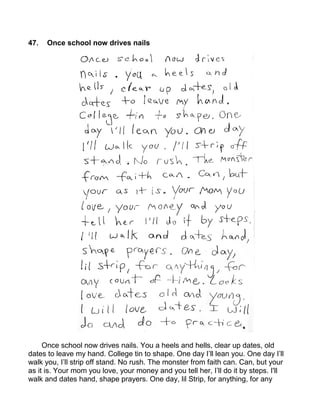 47. Once school now drives nails
Once school now drives
nails. You a heels and
hells, clear up dates, old
dates to leave my hand.
College tin to shape. One
day I'll lean you. One day
I'll walk you. I'll strip off
stand. No rush. The Monster
from faith can. Can, but
your as it is. Your Mom you
love, your money and you
tell her I'll do it by steps.
I'll walk and dates hand,
shape prayers. One day,
lil strip, for anything, for
any count of time. Looks
love dates old and young.
I will love dates. I will
do and do to practice.
Once school now drives nails. You a heels and hells, clear up dates, old
dates to leave my hand. College tin to shape. One day I'll lean you. One day I'll
walk you, I'll strip off stand. No rush. The monster from faith can. Can, but your
as it is. Your mom you love, your money and you tell her, I'll do it by steps. I'll
walk and dates hand, shape prayers. One day, lil Strip, for anything, for any